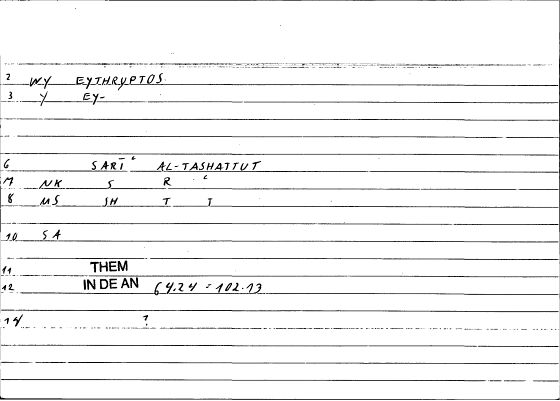 2 WY EYTHRYPTOS
3 Y EY-
6 SARĪʿ AL-TASHATTUT
M NK S R ʿ
8 MS SH T T
10 SA
11 THEM
12 IN DE AN 64.24 = 102.13
14 ?